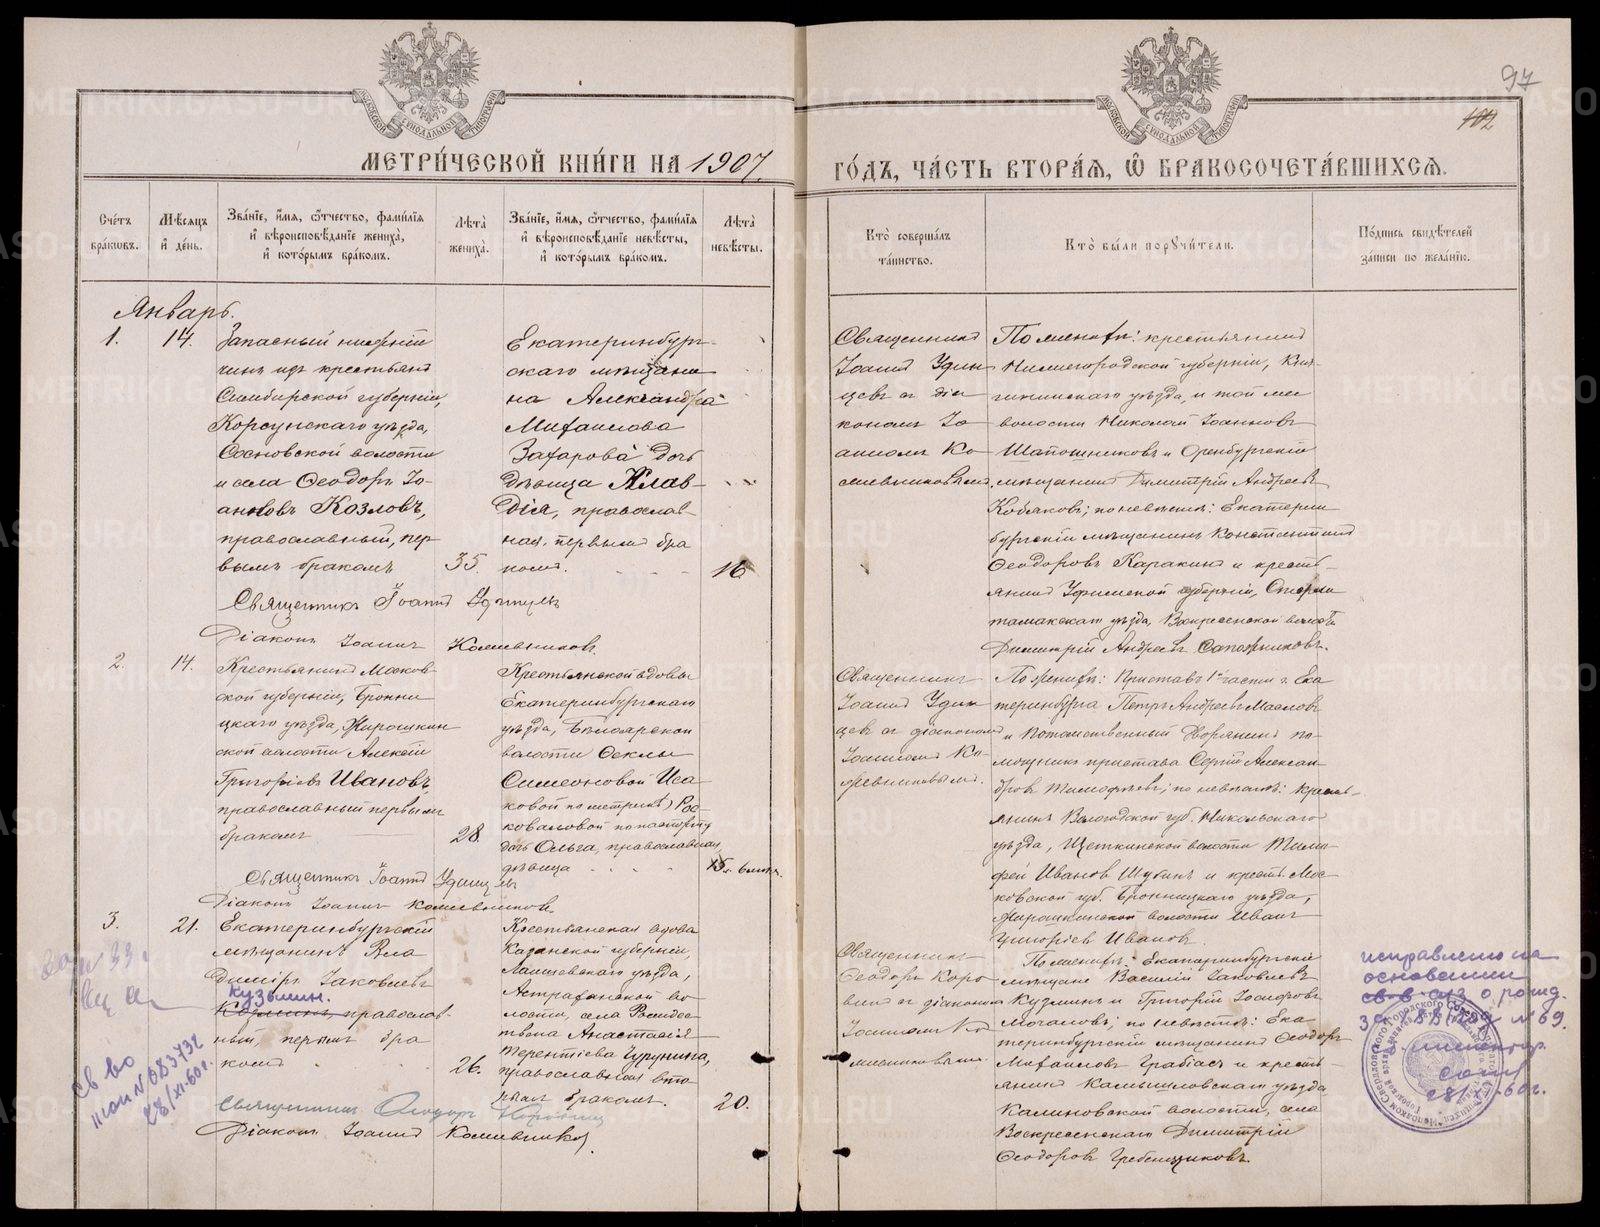 97
102
МЕТРИ́ЧЕСКОЙ КНИ́ГИ НА 1907.
ГО́ДЪ, ЧА́СТЬ ВТОРА́Я, Ѿ БРАКОСОЧЕТА́ВШИХСЯ.
Сче́тъ бра́ковъ.
Мѣ́сяцъ и҆ де́нь.
Зва́нїе, и҆́мя, ѻ҆́тчество, фами́лїя и҆ вѣроисповѣ́данїе жениха̀, и҆ кото́рымъ бра́комъ.
Лѣта̀ жениха̀.
Зва́нїе, и҆́мя, ѻ҆́тчество, фами́лїя и҆ вѣроисповѣ́данїе невѣ́сты, и҆ кото́рымъ бра́комъ.
Лѣта̀ невѣ́сты.
Кто̀ соверша́лъ та́инство.
Кто̀ бы́ли порꙋчи́тели.
По́дпись свидѣ́телей за́писи по жела́нїю.
Январь.
1.
14.
Запасный
чинъ изъ крестьянъ
Симбирской губерніи,
Корсунскаго уѣзда,
Сосновской волости
и села Ѳеодоръ Іо-
анновъ Козловъ,
православный, пер
вымъ бракомъ
35.
Екатеринбург-
скаго мѣщани
на Александра
Михаилова
Захарова дочь
дѣвица Клав-
дія, православ-
ная, первымъ бра
комъ.
16
Священникъ
Іоаннъ Удин
цевъ съ діа
кономъ Іо
анномъ Ко
По женихѣ: крестьянинъ
Нижегородской губерніи, Кня-
гининскаго уѣзда, и той же
волости Николай Іоанновъ
Шапошниковъ и Оренбургскій
мѣщанинъ Димитрій Андреевъ
Кобяковъ; по невѣстѣ: Екатерин
бургскій мѣщанинъ Константинъ
Ѳеодоровъ Каракинъ и кресть-
янинъ Уфимской губерніи, Стерли
тамакскаго уѣзда, Воскресенской волости
Димитрій Андреевъ Сапожниковъ.
Священникъ Іоаннъ Удинцевъ
Діаконъ Іоаннъ
2.
14.
Крестьянинъ Москов-
ской губерніи, Бронни
цкаго уѣзда, Жирошкин
ской волости Алексій
Григоріевъ Ивановъ,
православный первымъ
бракомъ
28.
Крестьянской вдовы
Екатеринбургскаго
уѣзда, Бѣлоярской
волости Ѳеклы
Симеоновой Иса
ковой по метрикѣ)
по паспорту
дочь Ольга, православная,
дѣвица
Священникъ
Іоаннъ Удин
цевъ съ діакономъ
Іоанномъ Ко-
По женихѣ: Приставъ 1 части г. Ека
теринбурга Петръ Андреевъ Масловъ
и Потомственный Дворянинъ по-
мощникъ пристава Сергій Алексан-
дровъ Тимофѣевъ; по невѣстѣ: кресть-
янинъ Вологодской губ. Никольскаго
уѣзда, Щеткинской волости Тимо-
фей Ивановъ Шубинъ и крест. Мос-
ковской губ. Бронницкаго уѣзда,
Жирошкинской волости Иванъ
Григоріевъ Ивановъ.
Священникъ Іоаннъ Удинцевъ
Діаконъ Іоаннъ
3.
21.
Екатеринбургскій
мѣщанинъ Вла
димиръ Іаковлевъ
Кузьмин.
православ-
ный, первымъ бра
комъ
26.
Крестьянская вдова
Казанской губерніи,
Лаишевскаго уѣзда,
Астраханской во
лости, села Рождес-
твена Анастасія
Терентіева
православная вто
рымъ бракомъ.
20.
Священникъ
Ѳеодоръ Коро
съ діакономъ
Іоанномъ Ко
По женихѣ: Екатеринбургскій
мѣщане Василій Іаковлевъ
Кузминъ и Григорій Іосифовъ
Мочаловъ; по невѣстѣ: Ека
теринбургскій мѣщанинъ Ѳеодоръ
Михаиловъ и кресть-
янинъ Камышловскаго уѣзда
Калиновской волости, села
Воскресенскаго Димитрій
Ѳеодоровъ Гребенщиковъ.
Священникъ Ѳеодоръ
Діаконъ Іоаннъ
исправлено на
основании
св-в о рожд.
№ 69.
Св во
№ 083732
28/XI-60г.
28/XI-60г.